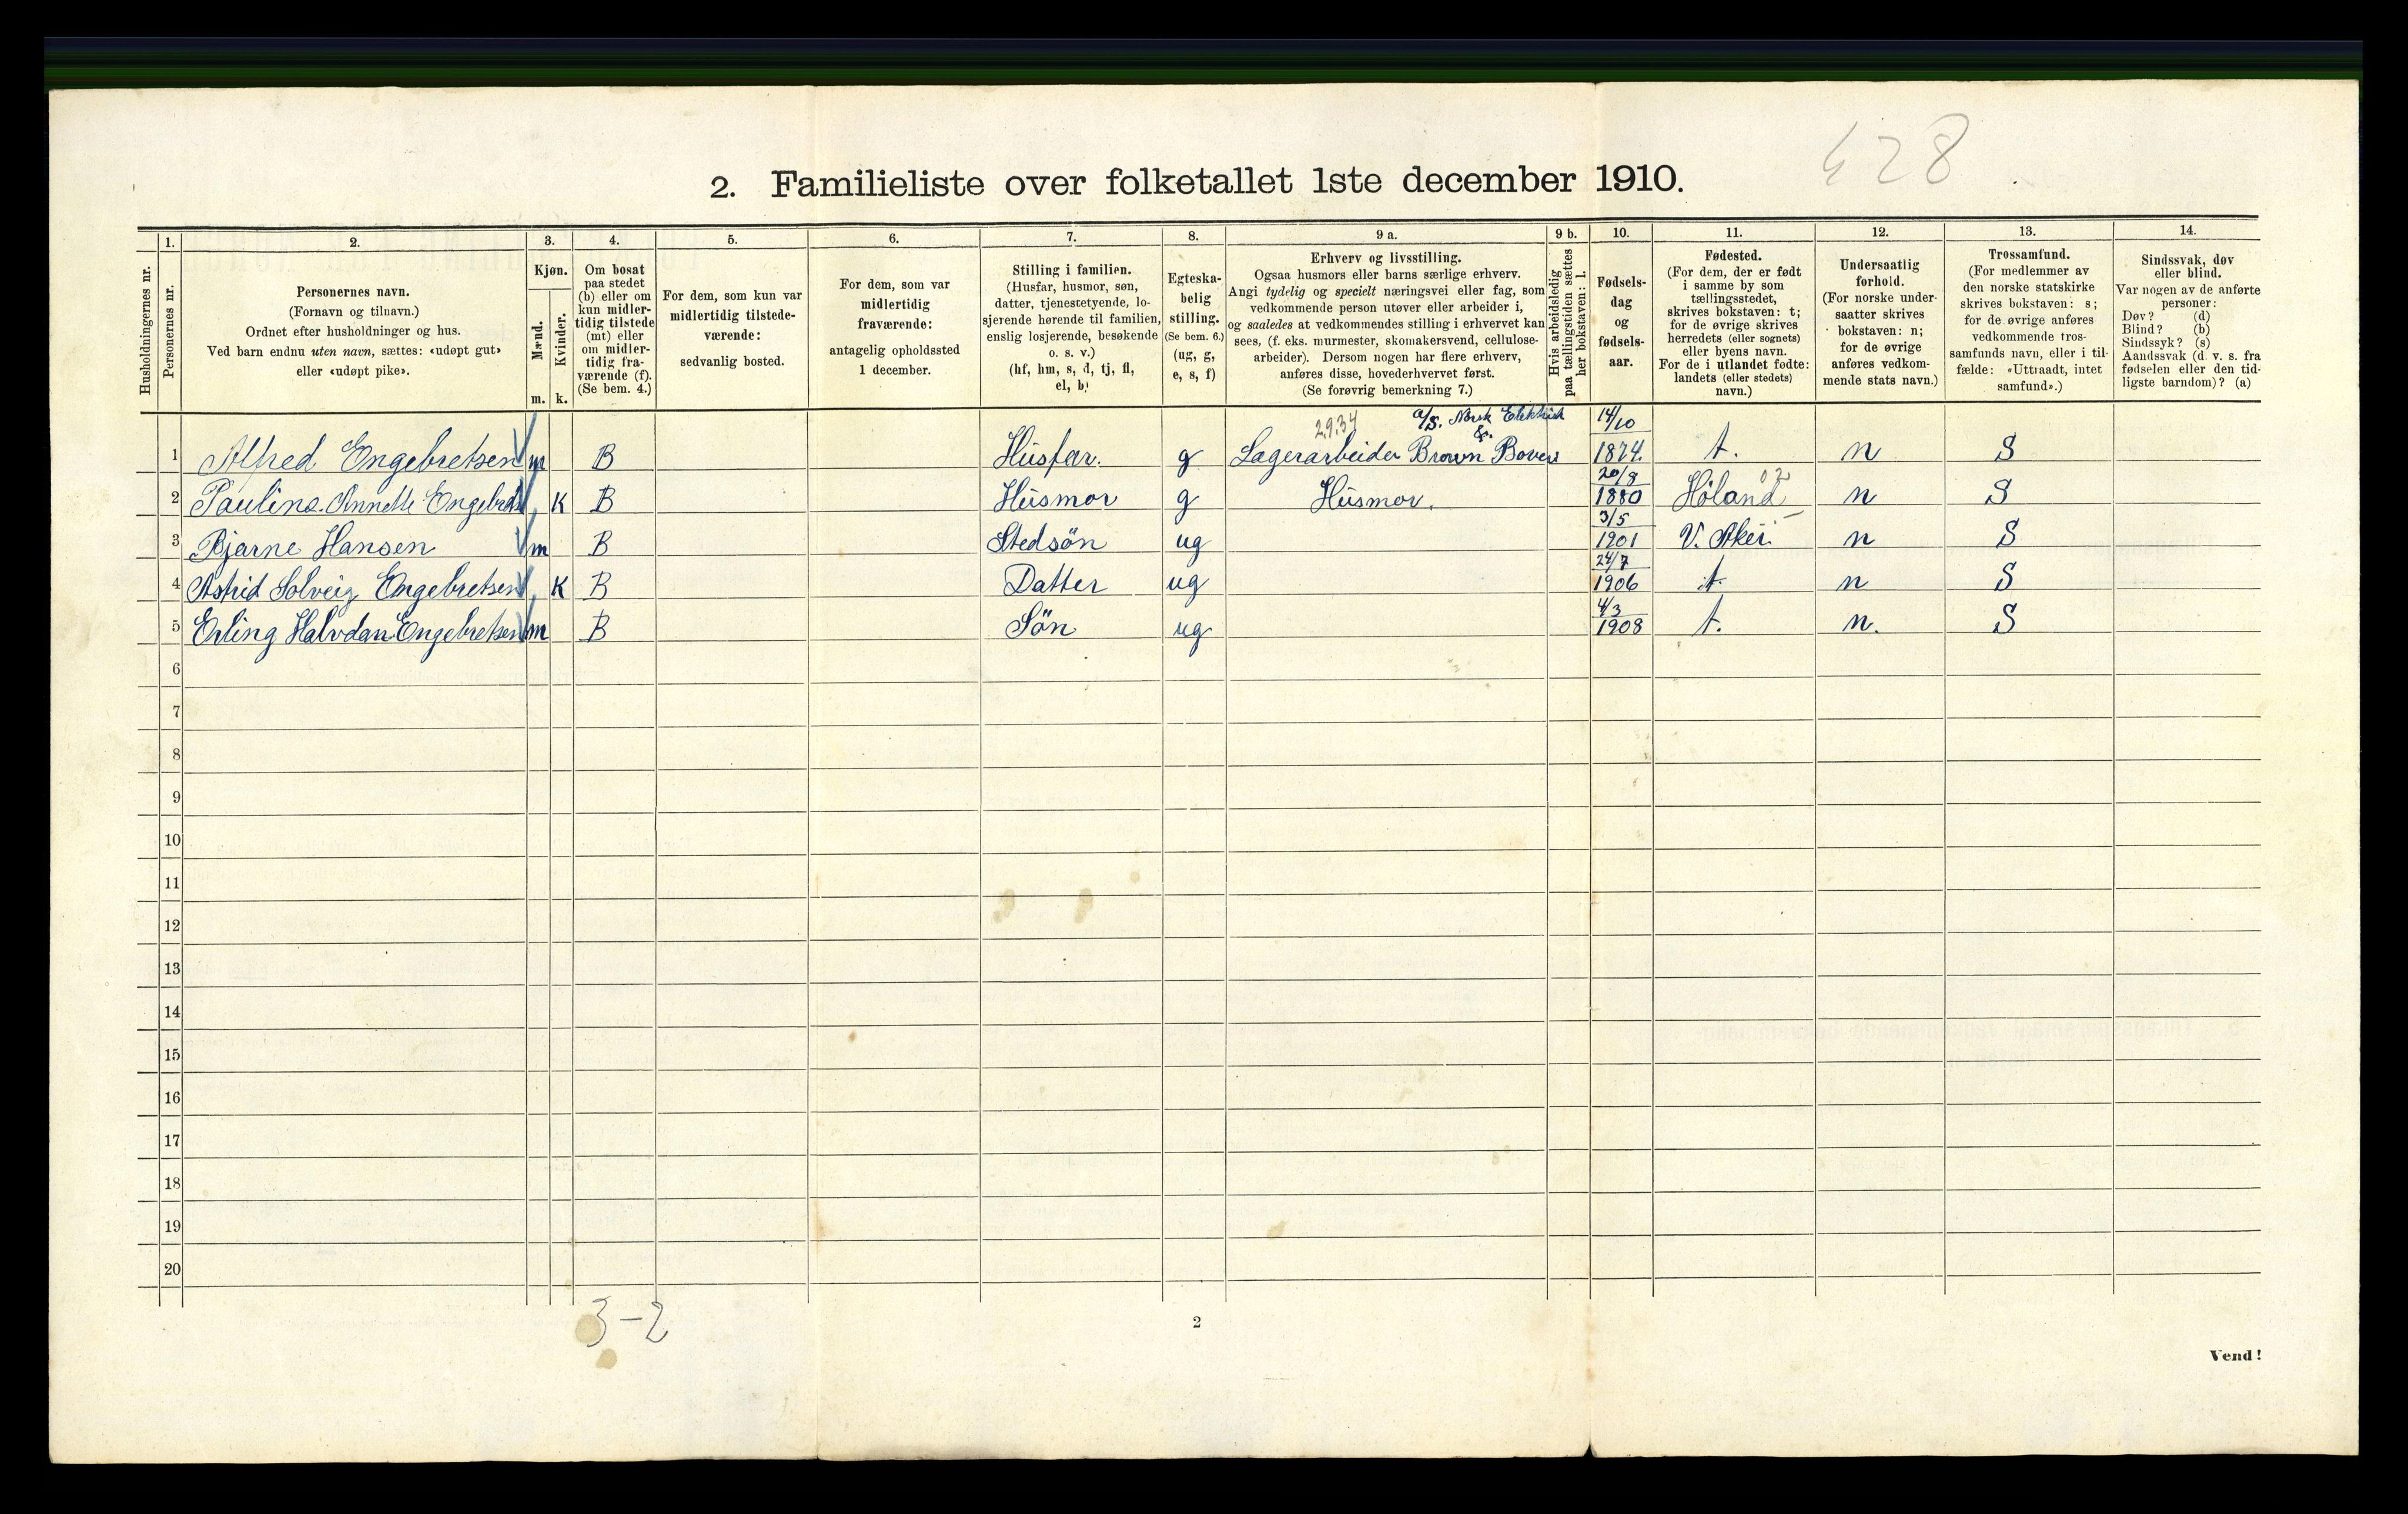 428
2. Familieliste over folketallet 1ste december 1910.
Husholdningernes nr.
1.
Personernes nr.
2.
Personernes navn.
(Fornavn og tilnavn.)
Ordnet efter husholdninger og hus.
Ved barn endnu uten navn, sættes: «udøpt gut»
eller «udøpt pike».
3.
Kjøn.
Mænd.
Kvinder.
m. k.
4.
Om bosat
paa stedet
(b) eller om
kun midler-
tidig tilstede
(mt) eller
om midler-
tidig fra-
værende (f).
(Se bem. 4.)
5.
For dem, som kun var
midlertidig tilstede-
værende:
sedvanlig bosted.
6.
For dem, som var
midlertidig
fraværende:
antagelig opholdssted
1 december.
7.
Stilling i familien.
(Husfar, husmor, søn,
datter, tjenestetyende, lo-
sjerende hørende til familien,
enslig losjerende, besøkende
o. s. v.)
(hf, hm, s, d, tj, fl,
el, b)
8.
Egteska-
belig
stilling.
(Se bem. 6.)
(ug, g,
e, s, f)
9 a.
Erhverv og livsstilling.
Ogsaa husmors eller barns særlige erhverv.
Angi tydelig og specielt næringsvei eller fag, som
vedkommende person utøver eller arbeider i,
og saaledes at vedkommendes stilling i erhvervet kan
sees, (f. eks. murmester, skomakersvend, cellulose-
arbeider). Dersom nogen har flere erhverv,
anføres disse, hovederhvervet først.
(Se forøvrig bemerkning 7.)
9 b.
Hvis arbeidsledig
paa tællingstiden sættes
her bokstaven: l.
10.
Fødsels-
dag
og
fødsels-
aar.
11.
Fødested.
(For dem, der er født
i samme by som
tællingsstedet,
skrives bokstaven: t;
for de øvrige skrives
herredets (eller sognets)
eller byens navn.
For de i utlandet fødte:
landets (eller stedets)
navn.)
12.
Undersaatlig
forhold.
(For norske under-
saatter skrives
bokstaven: n;
for de øvrige
anføres vedkom-
mende stats navn.)
13.
Trossamfund.
(For medlemmer av
den norske statskirke
skrives bokstaven: s;
for de øvrige anføres
vedkommende tros-
samfunds navn, eller i til-
fælde: «Uttraadt, intet
samfund».)
14.
Sindssvak, døv
eller blind.
Var nogen av de anførte
personer:
Døv? (d)
Blind? (b)
Sindssyk? (s)
Aandssvak (d. v. s. fra
fødselen eller den tid-
ligste barndom)? (a)
2.9.34 a/s. Norsk Elektrisk & 14/10
1 Alfred Engebretsen m B Husfar. g Lagerarbeider Brown Boveri 1874. t. n S
20/8 02
2 Pauline Annette Engebrets K B Husmor g Husmor. 1880 Høland n S
3/5
3 Bjarne Hansen m B Stedsön ug 1901 V. Aker. n S
24/7
4 Astrid Solveig Engebretsen K B Datter ug 1906 t n S
4/3
5 Erling Halvdan Engebretsen m B Sön ug 1908 t. n. S
6
7
8
9
10
11
12
13
14
15
16
17
18
19
20
3-2
2
Vend!